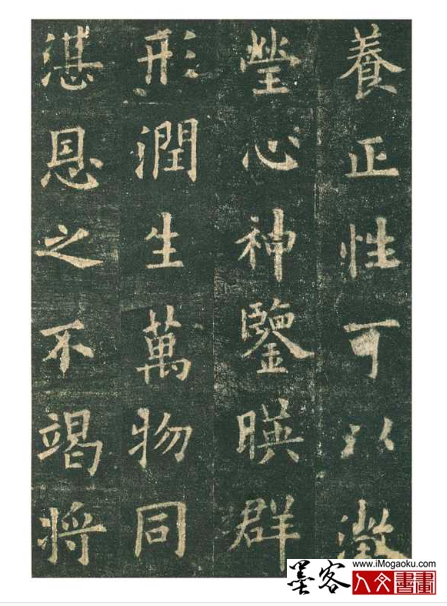 養正性可以澂
瑩心神鑒暎群
形潤生萬物同
湛恩之不竭將
www.iMogaoku.com
墨客
人文書畫